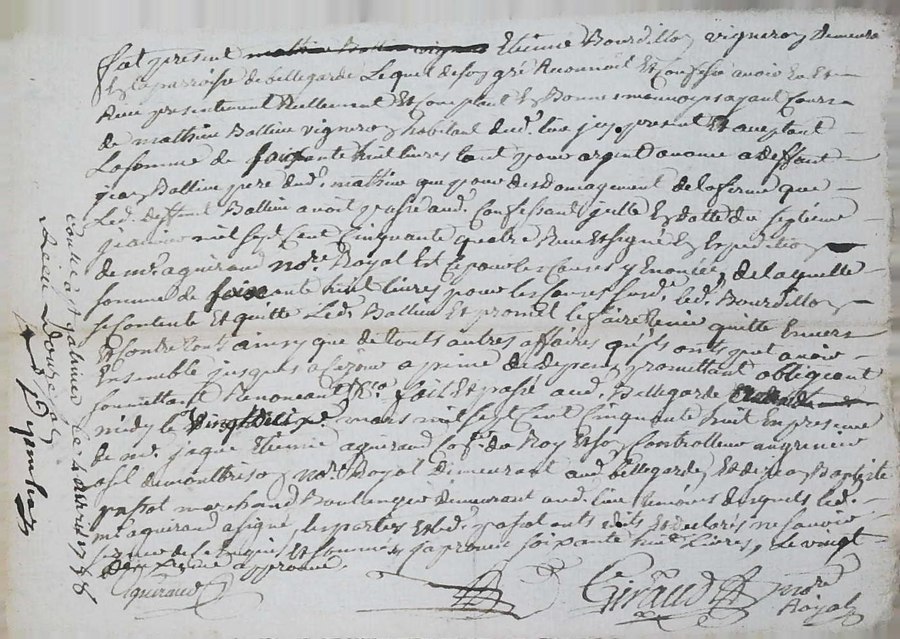 fut present Etienne Bourdillon vigneron demeurant
en la parroisse de Bellegarde Lequel de son gré a reconnu et Confessé avoir eu et
Receu presentement Reellement et Comptant En Bonne monnoye ayant Cours
de mathieu Ballieu vigneron habitant dud. lieu icy present et acceptant
La somme de soixante huit livres tant pour argent a deffunt
jean Ballieu pere dud. mathieu que pour desdomagement de la ferme que
Led. deffunt Ballieu avoit passé aud. Confessant jcelle En datte du septieme
janvier mil sept Cent Cinquante quatre Receu Et signé En Expedition
de me aguiraud nore Royal Et Ce pour les Causes y Enoncées, de laquelle
somme de soixante huit livres pour les Causes susd. led. Bourdillon
se Contente Et quitte Led. Ballieu Et promet le faire tenir quitte Envers
Et Contre touts ainsy que de touts autres affaires qu'ils ont peut avoir
Ensemble jusques a Ce jour a peine de depens, promettant obligeant
soumettant Renonceant &ca. fait Et passé aud. Bellegarde
midy le vingt mars mil sept Cent Cinquante huit En presence
de me jaque Etienne aguiraud Coner du Roy Et son Controlleur au grenier
a sel de montbrison nore Royal demeurant aud. bellegarde, Et de jean Baptiste
passot marchand Boulanger demeurant aud. lieu temoins desquels led.
me aguiraud a signé, les parties et led. passot ont dit Et declaré ne savoir
signer de Ce Enquis Et sommés approuvé soixante huit Livres, Le vingt
approuvé
aguiraud
Giraud nore
Royal
Controllé a St galmier le 4 avril 1758
Receu Douze sols